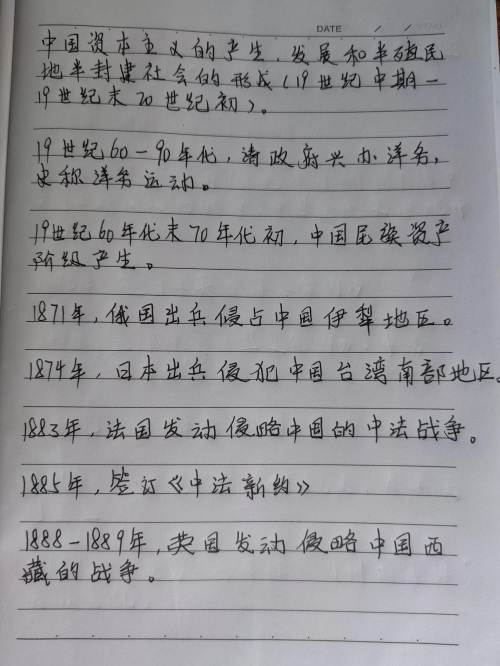 DATE / /
中国资本主义的产生、发展和半殖民
地半封建社会的形成(19世纪中期-
19世纪末20世纪初)。
19世纪60-90年代,清政府兴办洋务,
史称洋务运动。
19世纪60年代末70年代初,中国民族资产
阶级产生。
1871年,俄国出兵侵占中国伊犁地区。
1874年,日本出兵侵犯中国台湾南部地区。
1883年,法国发动侵略中国的中法战争。
1885年,签订《中法新约》
1888-1889年,英国发动侵略中国西
藏的战争。